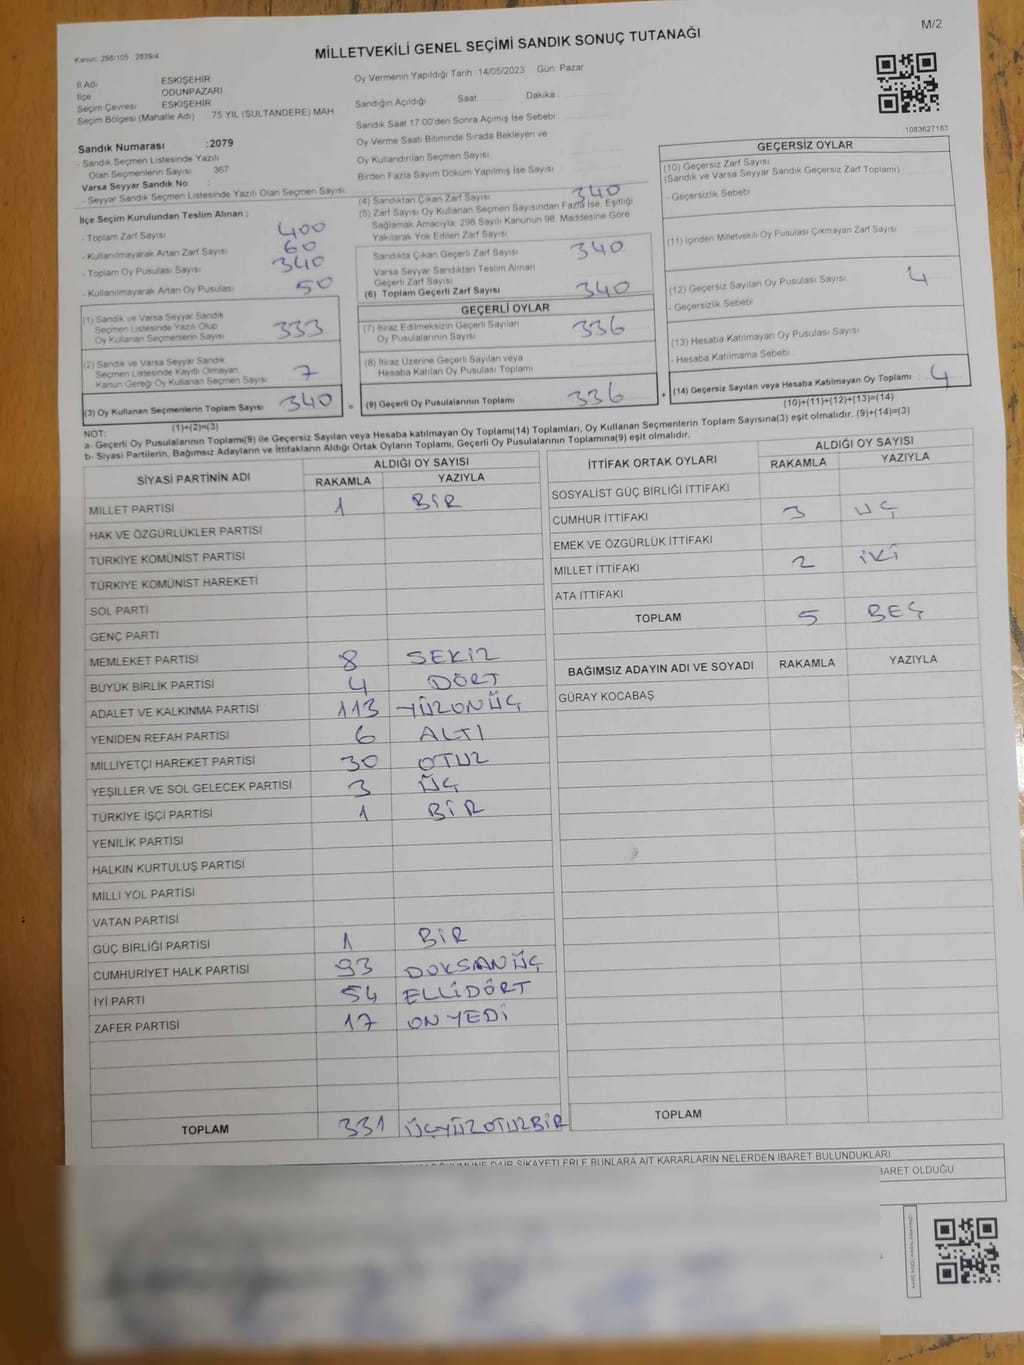 Kanun: 298/105 2839/4
MİLLETVEKİLİ GENEL SEÇİMİ SANDIK SONUÇ TUTANAĞI
M/2
İl Adı ESKİŞEHİR
İlçe ODUNPAZARI
Seçim Çevresi ESKİŞEHİR
Seçim Bölgesi (Mahalle Adı) : 75.YIL (SULTANDERE) MAH
Sandık Numarası :2079
- Sandık Seçmen Listesinde Yazılı
Olan Seçmenlerin Sayısı 367
Varsa Seyyar Sandık No :
- Seyyar Sandık Seçmen Listesinde Yazılı Olan Seçmen Sayısı:
İlçe Seçim Kurulundan Teslim Alınan ;
- Toplam Zarf Sayısı 400
- Kullanılmayarak Artan Zarf Sayısı 60
- Toplam Oy Pusulası Sayısı 340
- Kullanılmayarak Artan Oy Pusulası 50
(1) Sandık ve Varsa Seyyar Sandık
Seçmen Listesinde Yazılı Olup
Oy Kullanan Seçmenlerin Sayısı 333
(2) Sandık ve Varsa Seyyar Sandık
Seçmen Listesinde Kayıtlı Olmayan
Kanun Gereği Oy Kullanan Seçmen Sayısı 7
(3) Oy Kullanan Seçmenlerin Toplam Sayısı 340
(1)+(2)=(3)
Oy Vermenin Yapıldığı Tarih :14/05/2023 Gün: Pazar
Sandığın Açıldığı Saat Dakika
Sandık Saat 17:00'den Sonra Açımış İse Sebebi
Oy Verme Saati Bitiminde Sırada Bekleyen ve
Oy Kullandırılan Seçmen Sayısı
Birden Fazla Sayım Döküm Yapılmış İse Sayısı
(4) Sandıktan Çıkan Zarf Sayısı 340
(5) Zarf Sayısı Oy Kullanan Seçmen Sayısından Fazla İse, Eşitliği
Sağlamak Amacıyla, 298 Sayılı Kanunun 98. Maddesine Göre
Yakılarak Yok Edilen Zarf Sayısı
Sandıkta Çıkan Geçerli Zarf Sayısı 340
Varsa Seyyar Sandıktan Teslim Alınan
Geçerli Zarf Sayısı
(6) Toplam Geçerli Zarf Sayısı 340
GEÇERLİ OYLAR
(7) İtiraz Edilmeksizin Geçerli Sayılan
Oy Pusulalarının Sayısı 336
(8) İtiraz Üzerine Geçerli Sayılan veya
Hesaba Katılan Oy Pusulası Toplamı
= (9) Geçerli Oy Pusulalarının Toplamı 336
1083627183
GEÇERSİZ OYLAR
(10) Geçersiz Zarf Sayısı
(Sandık ve Varsa Seyyar Sandık Geçersiz Zarf Toplamı)
- Geçersizlik Sebebi
(11) İçinden Milletvekili Oy Pusulası Çıkmayan Zarf Sayısı
(12) Geçersiz Sayılan Oy Pusulası Sayısı 4
- Geçersizlik Sebebi
(13) Hesaba Katılmayan Oy Pusulası Sayısı
- Hesaba Katılmama Sebebi
+ (14) Geçersiz Sayılan veya Hesaba Katılmayan Oy Toplamı 4
(10)+(11)+(12)+(13)=(14)
NOT:
a- Geçerli Oy Pusulalarının Toplamı(9) ile Geçersiz Sayılan veya Hesaba katılmayan Oy Toplamı(14) Toplamları, Oy Kullanan Seçmenlerin Toplam Sayısına(3) eşit olmalıdır. (9)+(14)=(3)
b- Siyasi Partilerin, Bağımsız Adayların ve İttifakların Aldığı Ortak Oyların Toplamı, Geçerli Oy Pusulalarının Toplamına(9) eşit olmalıdır.
SİYASİ PARTİNİN ADI ALDIĞI OY SAYISI
RAKAMLA YAZIYLA
MİLLET PARTİSİ 1 BİR
HAK VE ÖZGÜRLÜKLER PARTİSİ
TÜRKİYE KOMÜNİST PARTİSİ
TÜRKİYE KOMÜNİST HAREKETİ
SOL PARTİ
GENÇ PARTİ
MEMLEKET PARTİSİ 8 SEKİZ
BÜYÜK BİRLİK PARTİSİ 4 DÖRT
ADALET VE KALKINMA PARTİSİ 113 YÜZONÜÇ
YENİDEN REFAH PARTİSİ 6 ALTI
MİLLİYETÇİ HAREKET PARTİSİ 30 OTUZ
YEŞİLLER VE SOL GELECEK PARTİSİ 3 ÜÇ
TÜRKİYE İŞÇİ PARTİSİ 1 BİR
YENİLİK PARTİSİ
HALKIN KURTULUŞ PARTİSİ
MİLLİ YOL PARTİSİ
VATAN PARTİSİ
GÜÇ BİRLİĞİ PARTİSİ 1 BİR
CUMHURİYET HALK PARTİSİ 93 DOKSANÜÇ
İYİ PARTİ 54 ELLİDÖRT
ZAFER PARTİSİ 17 ONYEDİ
TOPLAM 331 ÜÇYÜZOTUZBİR
İTTİFAK ORTAK OYLARI ALDIĞI OY SAYISI
RAKAMLA YAZIYLA
SOSYALİST GÜÇ BİRLİĞİ İTTİFAKI
CUMHUR İTTİFAKI 3 ÜÇ
EMEK VE ÖZGÜRLÜK İTTİFAKI
MİLLET İTTİFAKI 2 İKİ
ATA İTTİFAKI
TOPLAM 5 BEŞ
BAĞIMSIZ ADAYIN ADI VE SOYADI RAKAMLA YAZIYLA
GÜRAY KOCABAŞ
TOPLAM
DÖKÜMÜNE DAİR ŞİKAYETLERLE BUNLARA AİT KARARLARIN NELERDEN İBARET BULUNDUKLARI
İBARET OLDUĞU